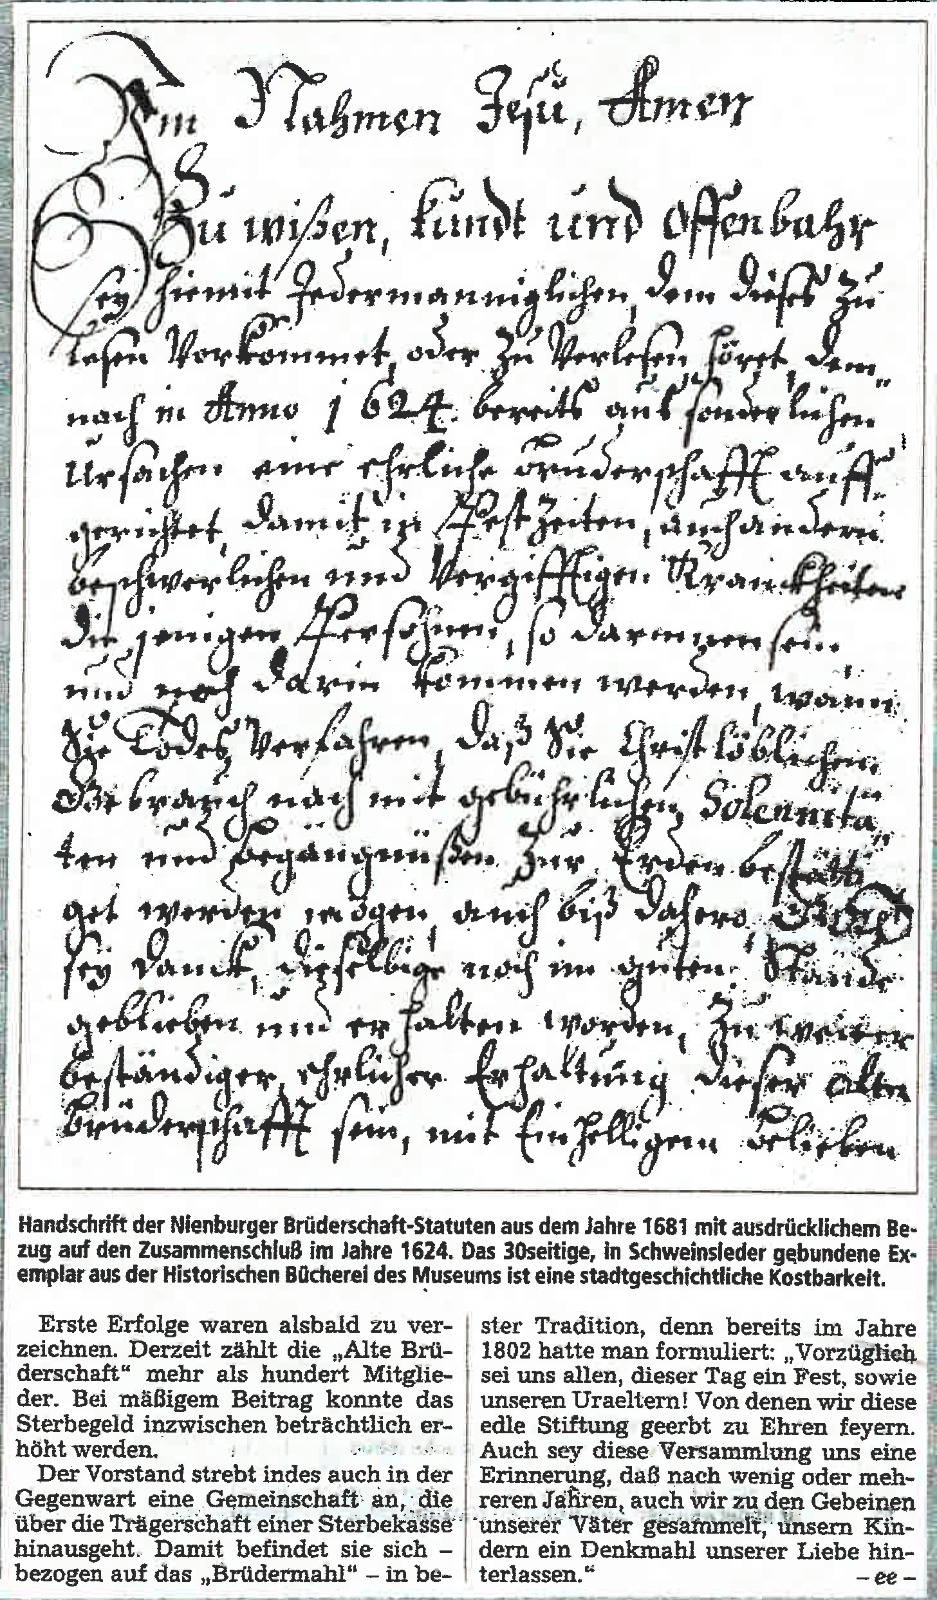 Im Nahmen Jesu, Amen
Zu wißen, kundt und offenbahr
sey hiemit Jedermanniglichen, dem dieses zu
lesen Vorkommet, oder zu Verlesen höret, dem„
nach in Anno 1624 bereits aus sonderlichen
Ursachen eine ehrliche Brüderschafft auff„
gerichtet, damit in Pestzeiten, auch andern
beschwerlichen und Vergifftigen Kranckheiten
die jenigen Persohnen, so darinnen sein,
und noch darin kommen werden, wann
Sie Todes Verfahren, daß Sie Christlöblichem
Gebrauch nach mit gebührlichen Solennitä„
ten und Begängnüßen zur Erden bestätti
get werden mögen, auch biß dahero, Gott
sey Danck, dieselbige noch im guten Stande
geblieben und erhalten worden, Zu weiter
beständiger, ehrlicher Erhaltung dieser alten
Brüderschafft sein, mit Einhelligem Belieben
Handschrift der Nienburger Brüderschaft-Statuten aus dem Jahre 1681 mit ausdrücklichem Be-
zug auf den Zusammenschluß im Jahre 1624. Das 30seitige, in Schweinsleder gebundene Ex-
emplar aus der Historischen Bücherei des Museums ist eine stadtgeschichtliche Kostbarkeit.
Erste Erfolge waren alsbald zu ver-
zeichnen. Derzeit zählt die „Alte Brü-
derschaft“ mehr als hundert Mitglie-
der. Bei mäßigem Beitrag konnte das
Sterbegeld inzwischen beträchtlich er-
höht werden.
Der Vorstand strebt indes auch in der
Gegenwart eine Gemeinschaft an, die
über die Trägerschaft einer Sterbekasse
hinausgeht. Damit befindet sie sich –
bezogen auf das „Brüdermahl“ – in be-
ster Tradition, denn bereits im Jahre
1802 hatte man formuliert: „Vorzüglich
sei uns allen, dieser Tag ein Fest, sowie
unseren Uraeltern! Von denen wir diese
edle Stiftung geerbt zu Ehren feyern.
Auch sey diese Versammlung uns eine
Erinnerung, daß nach wenig oder meh-
reren Jahren, auch wir zu den Gebeinen
unserer Väter gesammelt, unsern Kin-
dern ein Denkmahl unserer Liebe hin-
terlassen.“ – ee –